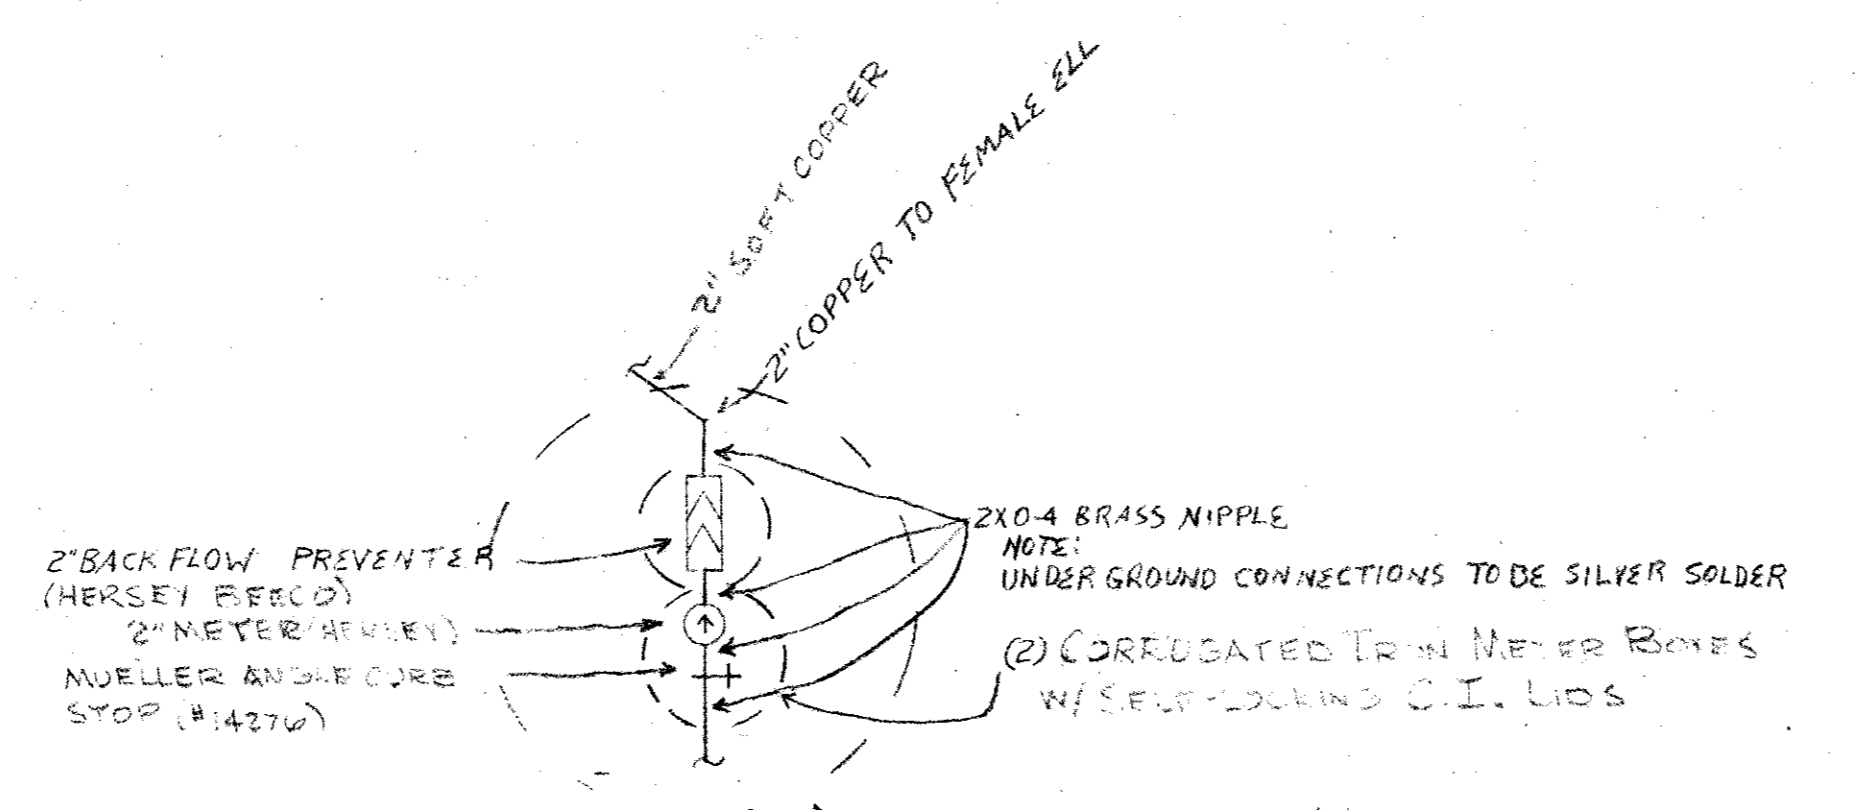 2" SOFT COPPER
2" COPPER TO FEMALE ELL
2" BACK FLOW PREVENTER
(HERSEY BEECO)
2" METER
MUELLER ANGLE CURB
STOP (#14276)
2X0-4 BRASS NIPPLE
NOTE:
UNDER GROUND CONNECTIONS TO BE SILVER SOLDER
(2) CORRUGATED IRON METER BOXES
W/ SELF-LOCKING C.I. LIDS